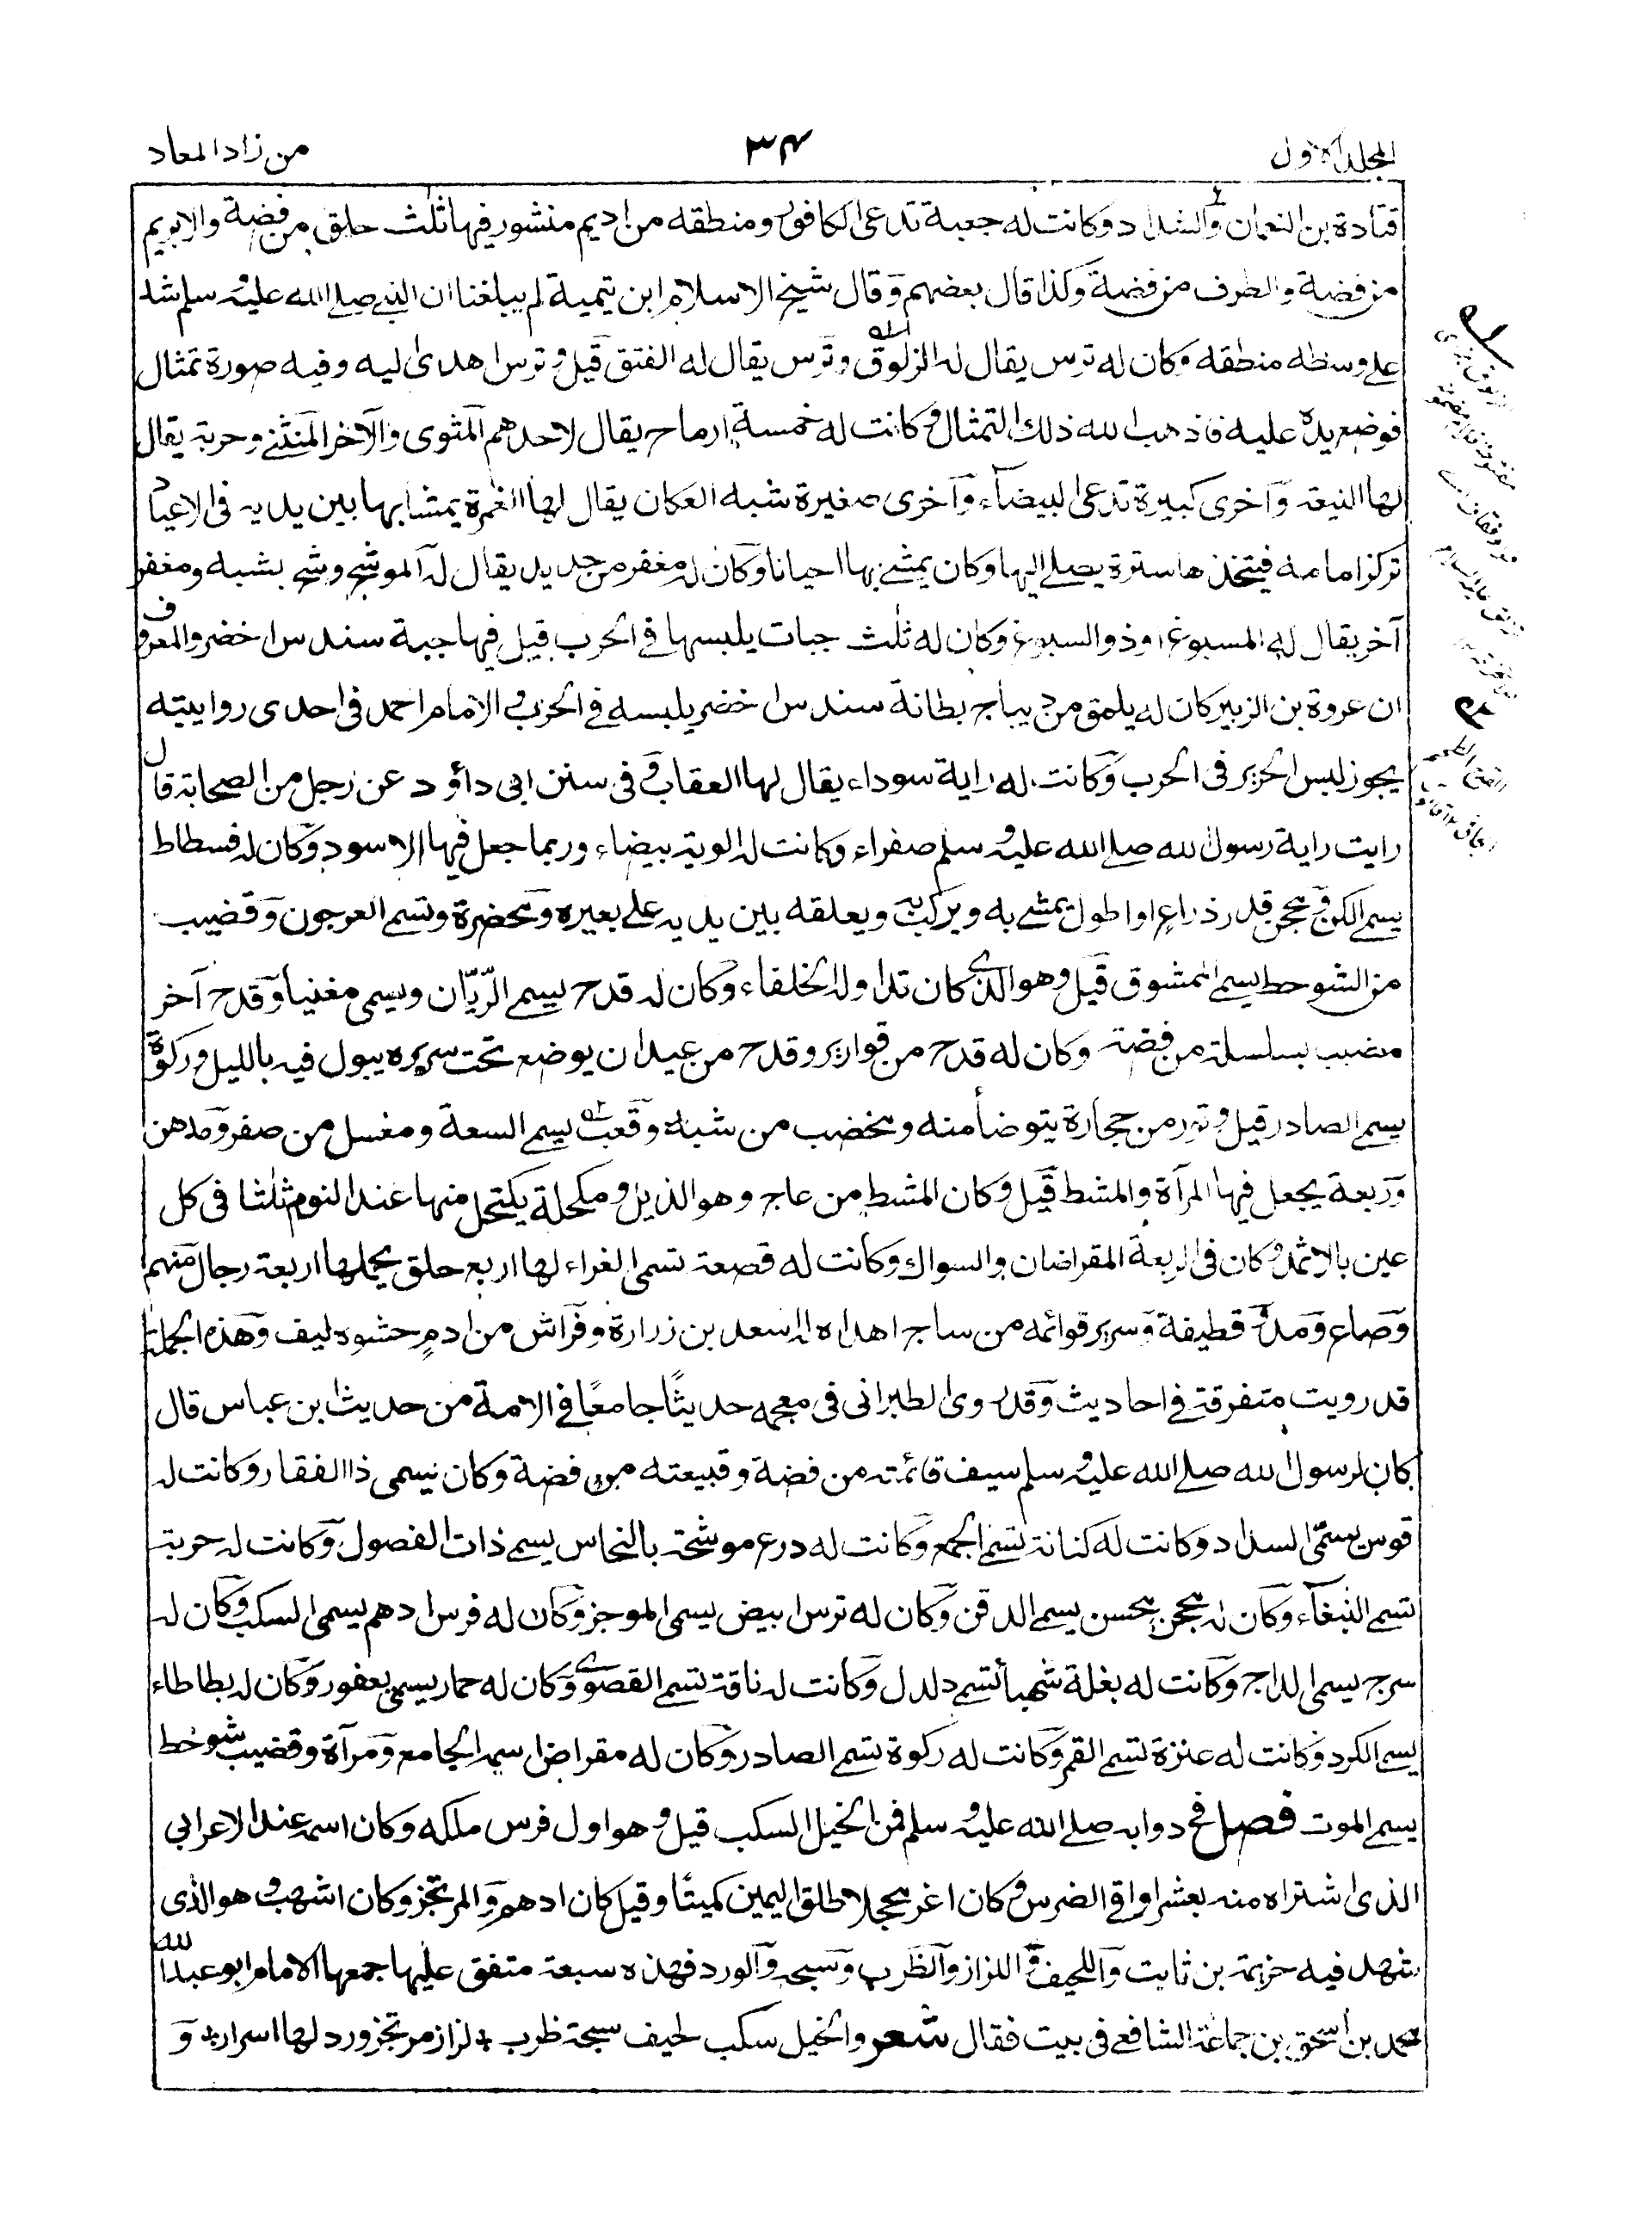 المجلد الاول
٣٤
من زاد المعاد
قتادة بن النعمان والشداد وكانت له جعبة تدعى الكافور ومنطقه من اديم منشور فيها ثلث حلق من فضة والابريم
من فضة والطرف من فضة وكذا قال بعضهم وقال شيخ الاسلام ابن تيمية لم يبلغنا ان النبي صلى الله عليه وسلم شد
على وسطه منطقه وكان له ترس يقال له الزلوق وترس يقال له الفتق قيل وترس اهدى اليه وفيه صورة تمثال
فوضع يده عليه فاذهب الله ذلك التمثال وكانت له خمسة ارماح يقال لاحدهم المثوى والآخر المنثنى وحربة يقال
لها النبعة وآخرى كبيرة تدعى البيضآء وآخرى صغيرة شبه العكان يقال لها الغمرة يمشا بها بين يديه فى الاعياد
تركز امامه فيتخذها سترة يصلى اليها وكان يمشى بها احيانا وكان له مغفر من حديد يقال له الموشح وشح بشبه ومغفر
آخر يقال له المسبوغ او ذو السبوغ وكان له ثلث جبات يلبسها فى الحرب قيل فيها جبة سندس اخضر والمعروف
ان عروة بن الزبير كان له يلمق من ديباج بطانة سندس اخضر يلبسه فى الحرب والامام احمد فى احدى روايتيه
يجوز لبس الحرير فى الحرب وكانت له راية سوداء يقال لها العقاب وفى سنن ابى داؤد عن رجل من الصحابة قال
رايت راية رسول الله صلى الله عليه وسلم صفراء وكانت له الوية بيضاء وربما جعل فيها الاسود وكان له فسطاط
يسمى الكن ومحجن قدر ذراع او اطول يمشى به ويركب به ويعلقه بين يديه على بعيره ومخضرة وتسمى العرجون وقضيب
من الشوحط يسمى الممشوق قيل وهو الذى كان تداوله الخلفاء وكان له قدح يسمى الرّيّان ويسمى مغنيا وقدح آخر
مضبب بسلسلة من فضة وكان له قدح من قوارير وقدح من عيدان يوضع تحت سريره يبول فيه بالليل وركوة
يسمى الصادر قيل وتور من حجارة يتوضأ منه ومخضب من شبه وقعب يسمى السعة ومغسل من صفر ومدهن
وربعة يجعل فيها المرآة والمشط قيل وكان المشط من عاج وهو الذيل ومكحلة يكتحل منها عند النوم ثلثا فى كل
عين بالاثمد وكان فى الربعة المقراضان والسواك وكانت له قصعة تسمى الغراء لها اربع حلق يحملها اربعة رجال منهم
وصاع ومد وقطيفة وسرير قوائمه من ساج اهداه له اسعد بن زرارة وفراش من ادم حشوه ليف وهذه الجملة
قد رويت متفرقة فى احاديث وقد روى الطبرانى فى معجمه حديثًا جامعًا فى الامة من حديث ابن عباس قال
كان لرسول الله صلى الله عليه وسلم سيف قائمته من فضة وقبيعته من فضة وكان يسمى ذا الفقار وكانت له
قوس يسمّى السداد وكانت له كنانة تسمى الجمع وكانت له درع موشحة بالنحاس يسمى ذات الفصول وكانت له حربة
تسمى النبغآء وكان له محجن محسن يسمى الدقن وكان له ترس ابيض يسمى الموجز وكان له فرس ادهم يسمى السكب وكان له
سرج يسمى الداج وكانت له بغلة شهبأ تسمى دلدل وكانت له ناقة تسمى القصوى وكان له حمار يسمى يعفور وكان له بطاطاء
يسمى الكرد وكانت له عنزة تسمى القمر وكانت له ركوة تسمى الصادر وكان له مقراض اسمه الجامع ومرآة وقضيب شوحط
يسمى الموت فصل فى دوابه صلى الله عليه وسلم فمن الخيل السكب قيل وهو اول فرس ملكه وكان اسمه عند الاعرابى
الذى اشتراه منه بعشر اواقى الضرس وكان اغر محجلا طلق اليمين كميتًا وقيل كان ادهم والمرتجز وكان اشهب وهو الذى
شهد فيه خزيمة بن ثابت واللحيف واللزاز والظرب وسبحه والورد فهذه سبعة متفق عليها جمعها الامام ابو عبد الله
محمد بن اسحق بن جماعة الشافعى فى بيت فقال شعر والخيل سكب لحيف سبحة ظرب + لزاز مرتجز ورد لها اسرار + و